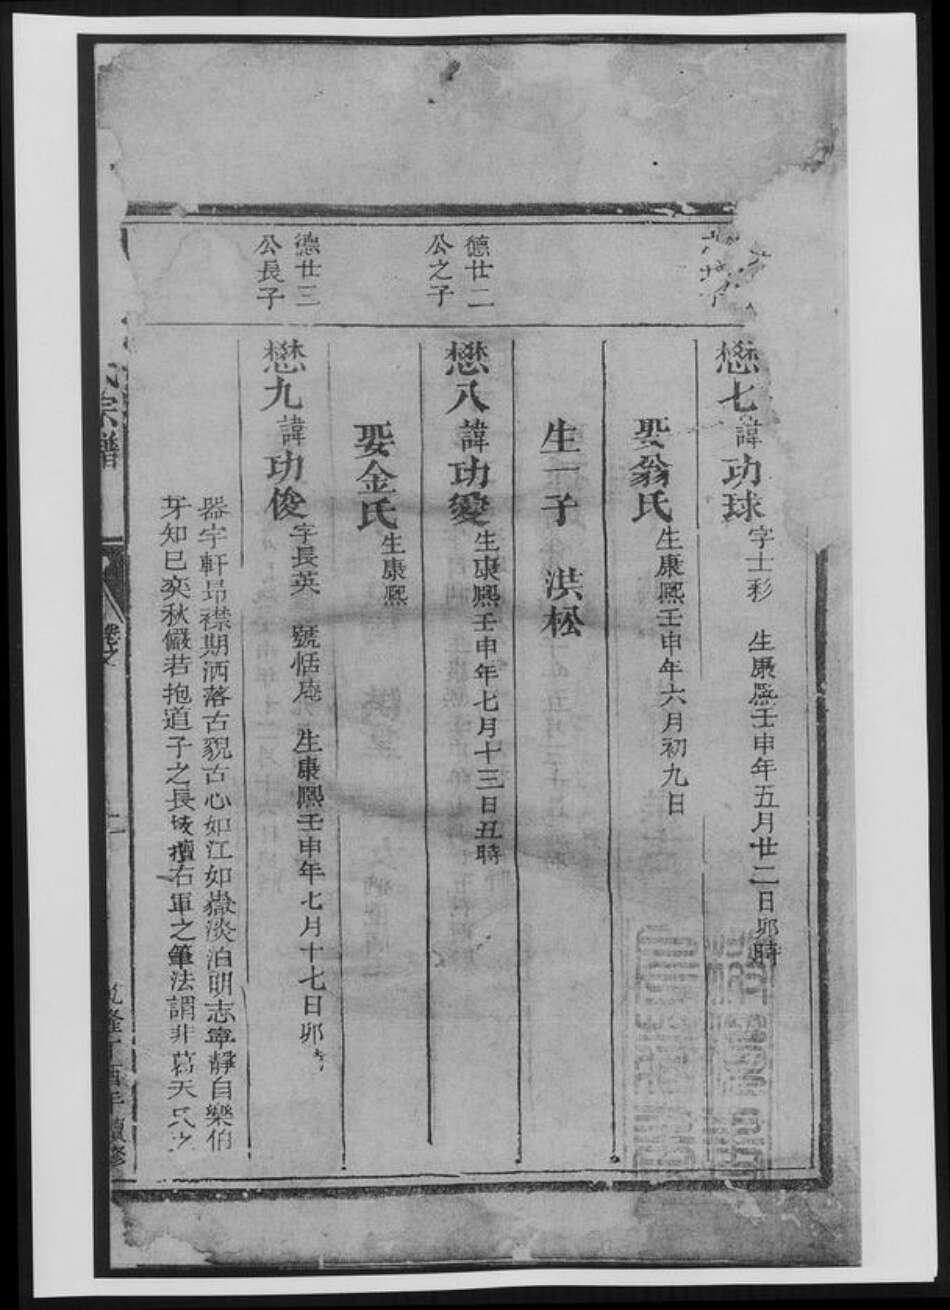 懋七諱功球字士彩 生康熙壬申年五月廿二日卯時
娶翁氏生康熙壬申年六月初九日
生一子 洪松
德廿二
公之子
懋八諱功愛生康熙壬申年七月十三日丑時
娶金氏生康熙
德廿三
公長子
懋九諱功俊字長英 號恬菴 生康熙壬申年七月十七日卯
器宇軒昻襟期洒落古貌古心如江如嶽淡泊明志寧靜自樂伯
牙知已奕秋儼若抱道子之長 擅右軍之筆法謂非葛天氏之
氏宗譜
卷之
二
乾隆丁酉年續修